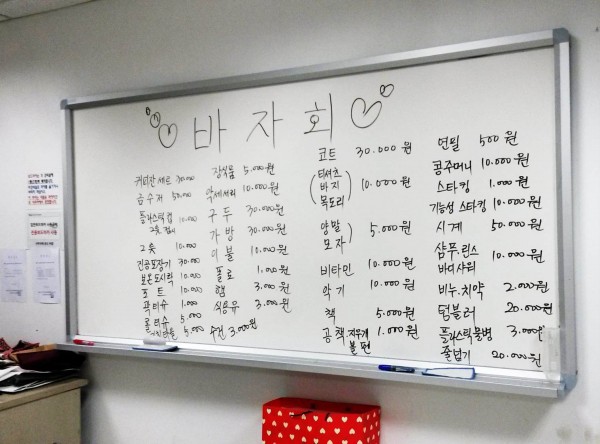 바자회
커피잔 세트 30.000
금수저 50.000
플라스틱컵 10.000
그릇, 접시
그릇 10.000
진공포장기 30.000
보온도시락 10.000
포트 10.000
곽티슈 1.000
롤티슈 5.000
5.000
장식품 5.000원
악세서리 10.000원
구두 30.000원
가방 30.000원
이불 10.000원
풀로 1.000원
햄 3.000원
식용유 3.000원
수건 3.000원
코트 30.000원
티셔츠
바지 10.000원
목도리
양말
모자 5.000원
비타민 10.000원
악기 10.000원
책 5.000원
공책, 지우개 1.000원
볼펜
연필 500원
콩주머니 10.000원
스타킹 1.000원
기능성 스타킹 10.000원
시계 50.000원
샴푸.린스 10.000원
바디샤워
비누.치약 2.000원
텀블러 20.000원
플라스틱물병 3.000원
줄넘기 20.000원